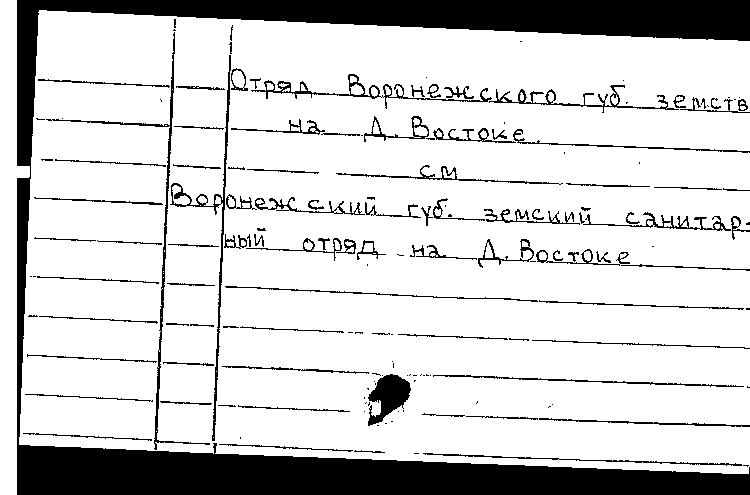 Отряд Воронежского губ. земств
на Д. Востоке.
см
Воронежский губ. земский санитар-
ный отряд на Д. Востоке